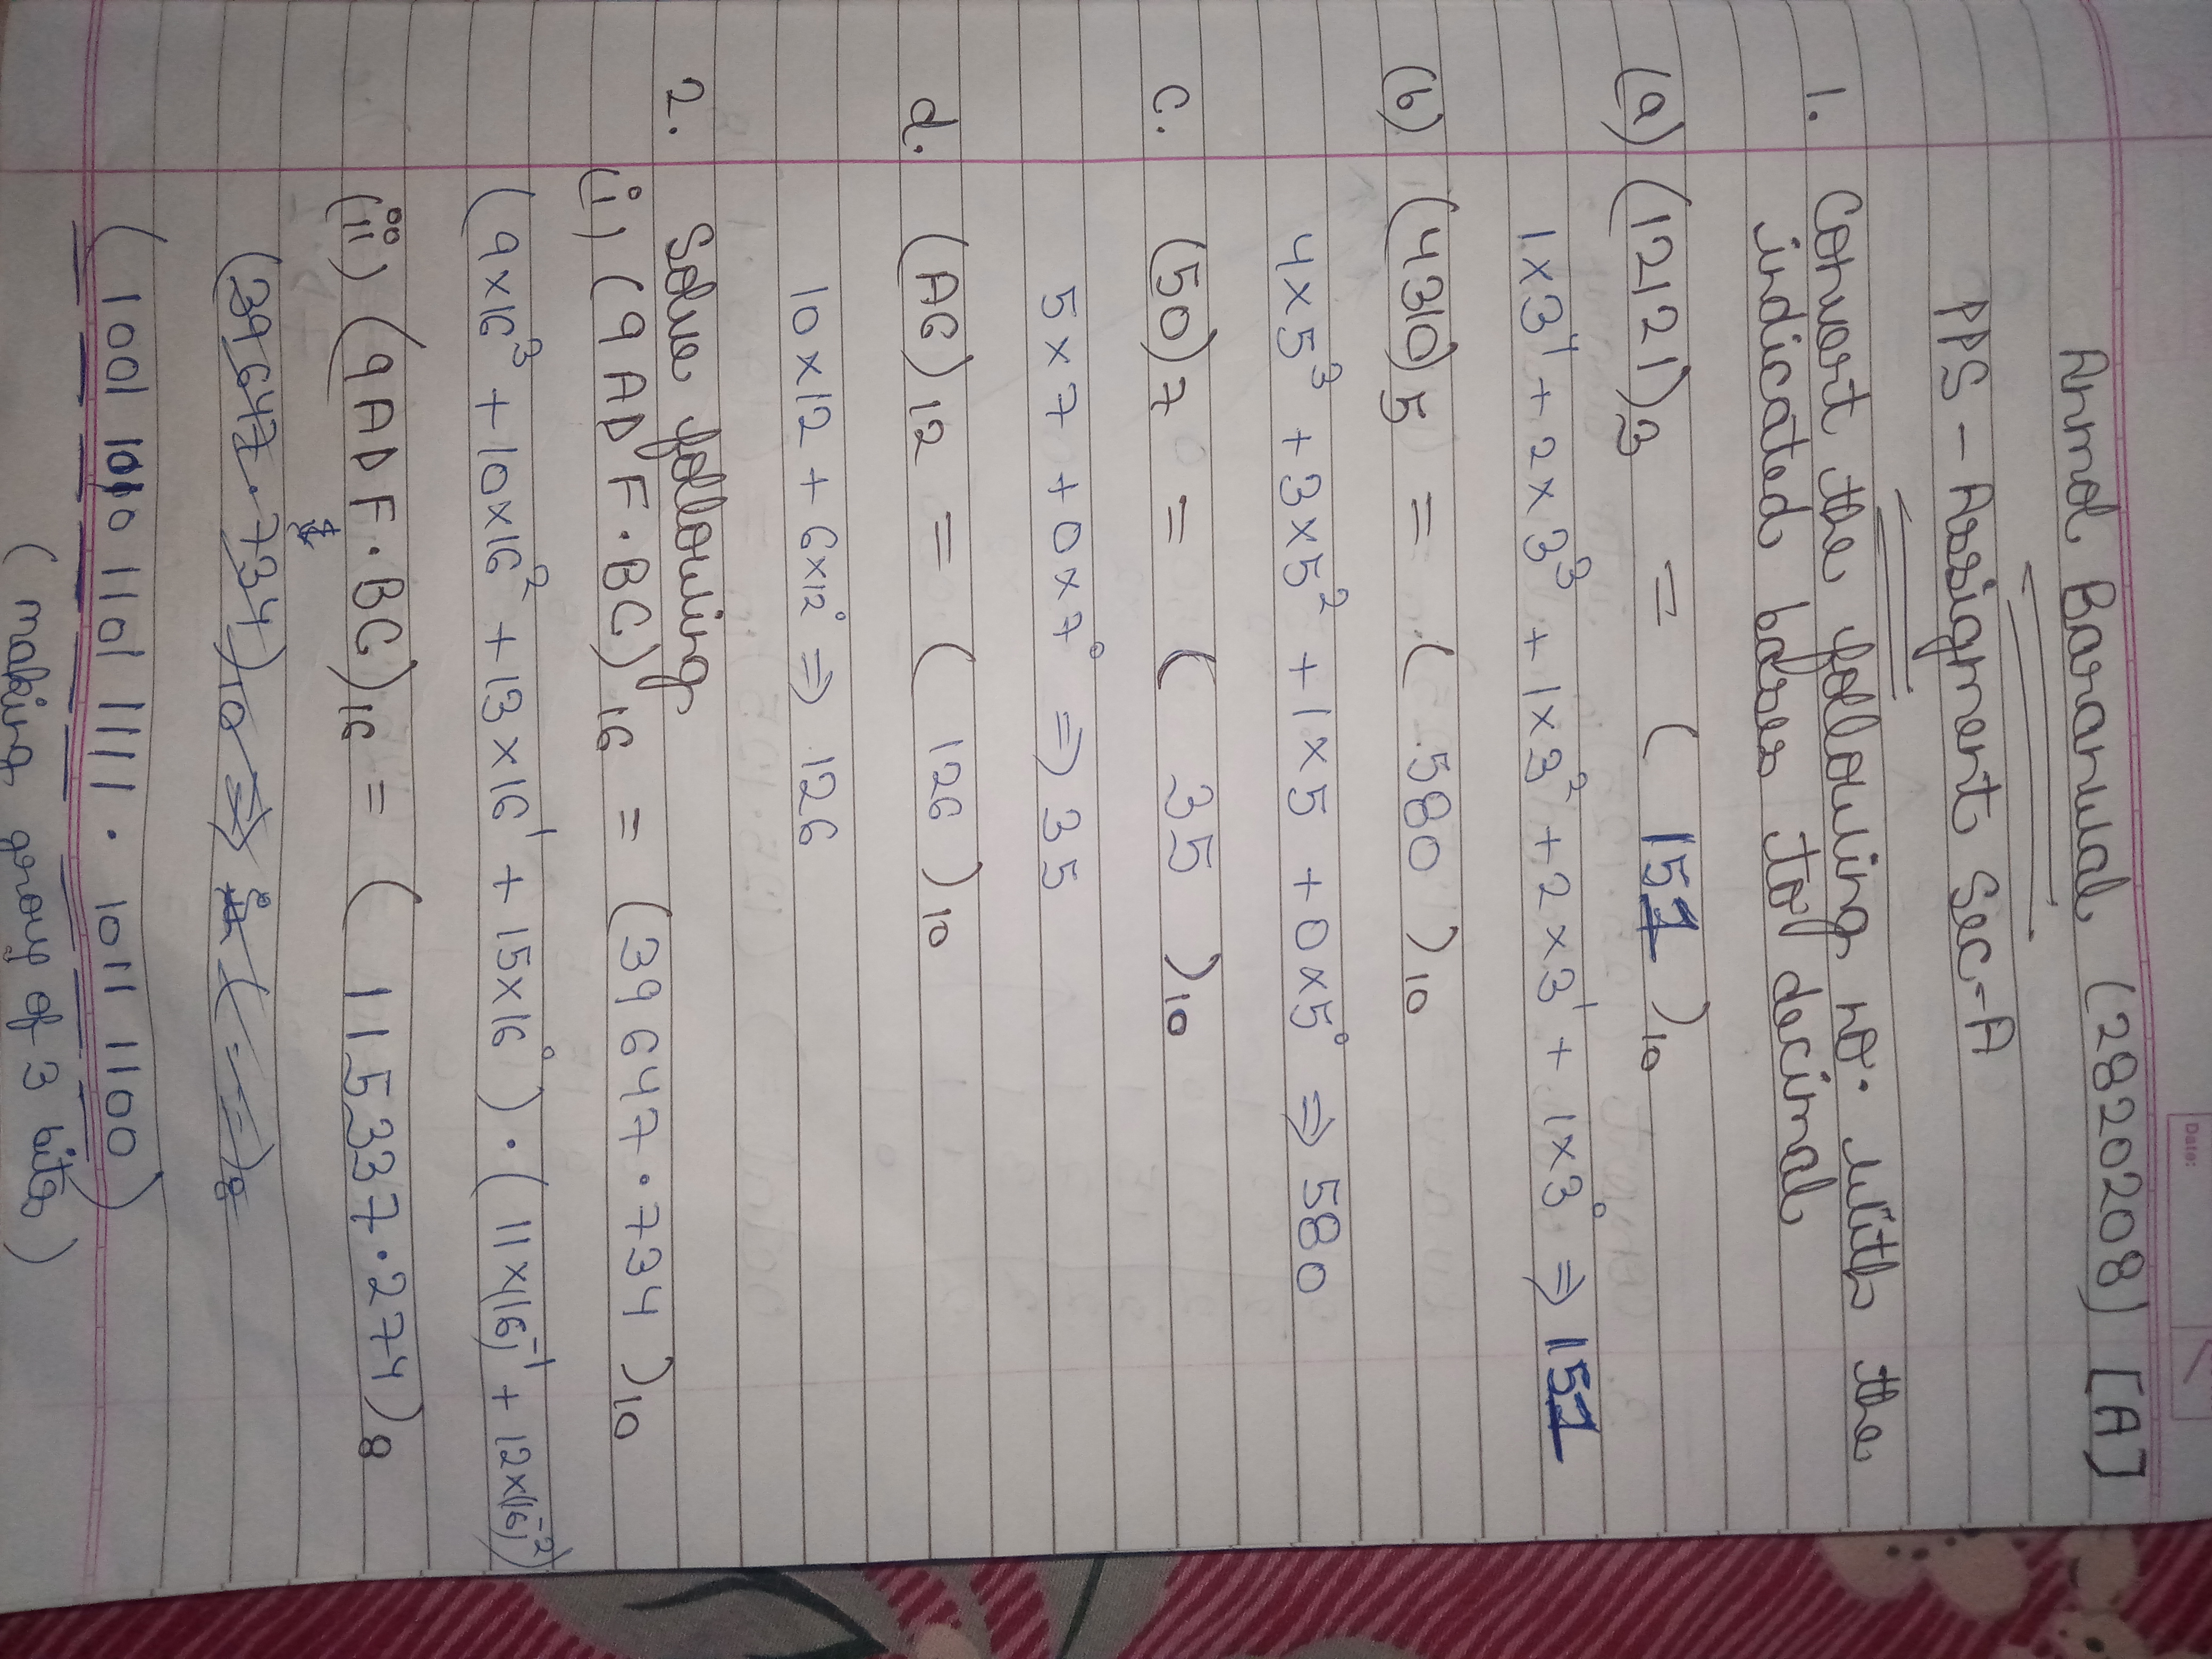 Date:
Anmol Baranwal (2820208) [A]
PPS - Assigment Sec-A
1. Convert the following no. with the
indicated bases to decimal
(a) (12121)3 = ( 151 )10
1×3⁴ + 2×3³ + 1×3² + 2×3¹ + 1×3⁰ ⇒ 151
(b) (4310)5 = ( 580 )10
4×5³ + 3×5² + 1×5 + 0×5⁰ ⇒ 580
c. (50)7 = ( 35 )10
5×7 + 0×7⁰ ⇒ 35
d. (A6)12 = ( 126 )10
10×12 + 6×12⁰ ⇒ 126
2. Solve following
(i) (9ADF.BC)16 = (39647.734)10
(9×16³ + 10×16² + 13×16¹ + 15×16⁰) . (11×(16)⁻¹ + 12×(16)⁻²)
(ii) (9ADF.BC)16 = ( 115337.274)8
(39647.734)10 ⇒ ( )8
(1001 1010 1101 1111 . 1011 1100)
(making group of 3 bits)